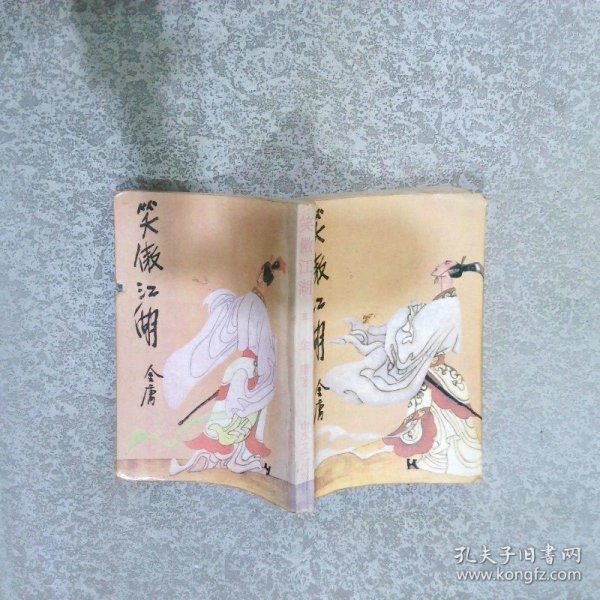 笑傲江湖
金庸
笑傲江湖
金庸
笑傲江湖
孔夫子旧书网
www.kongfz.com